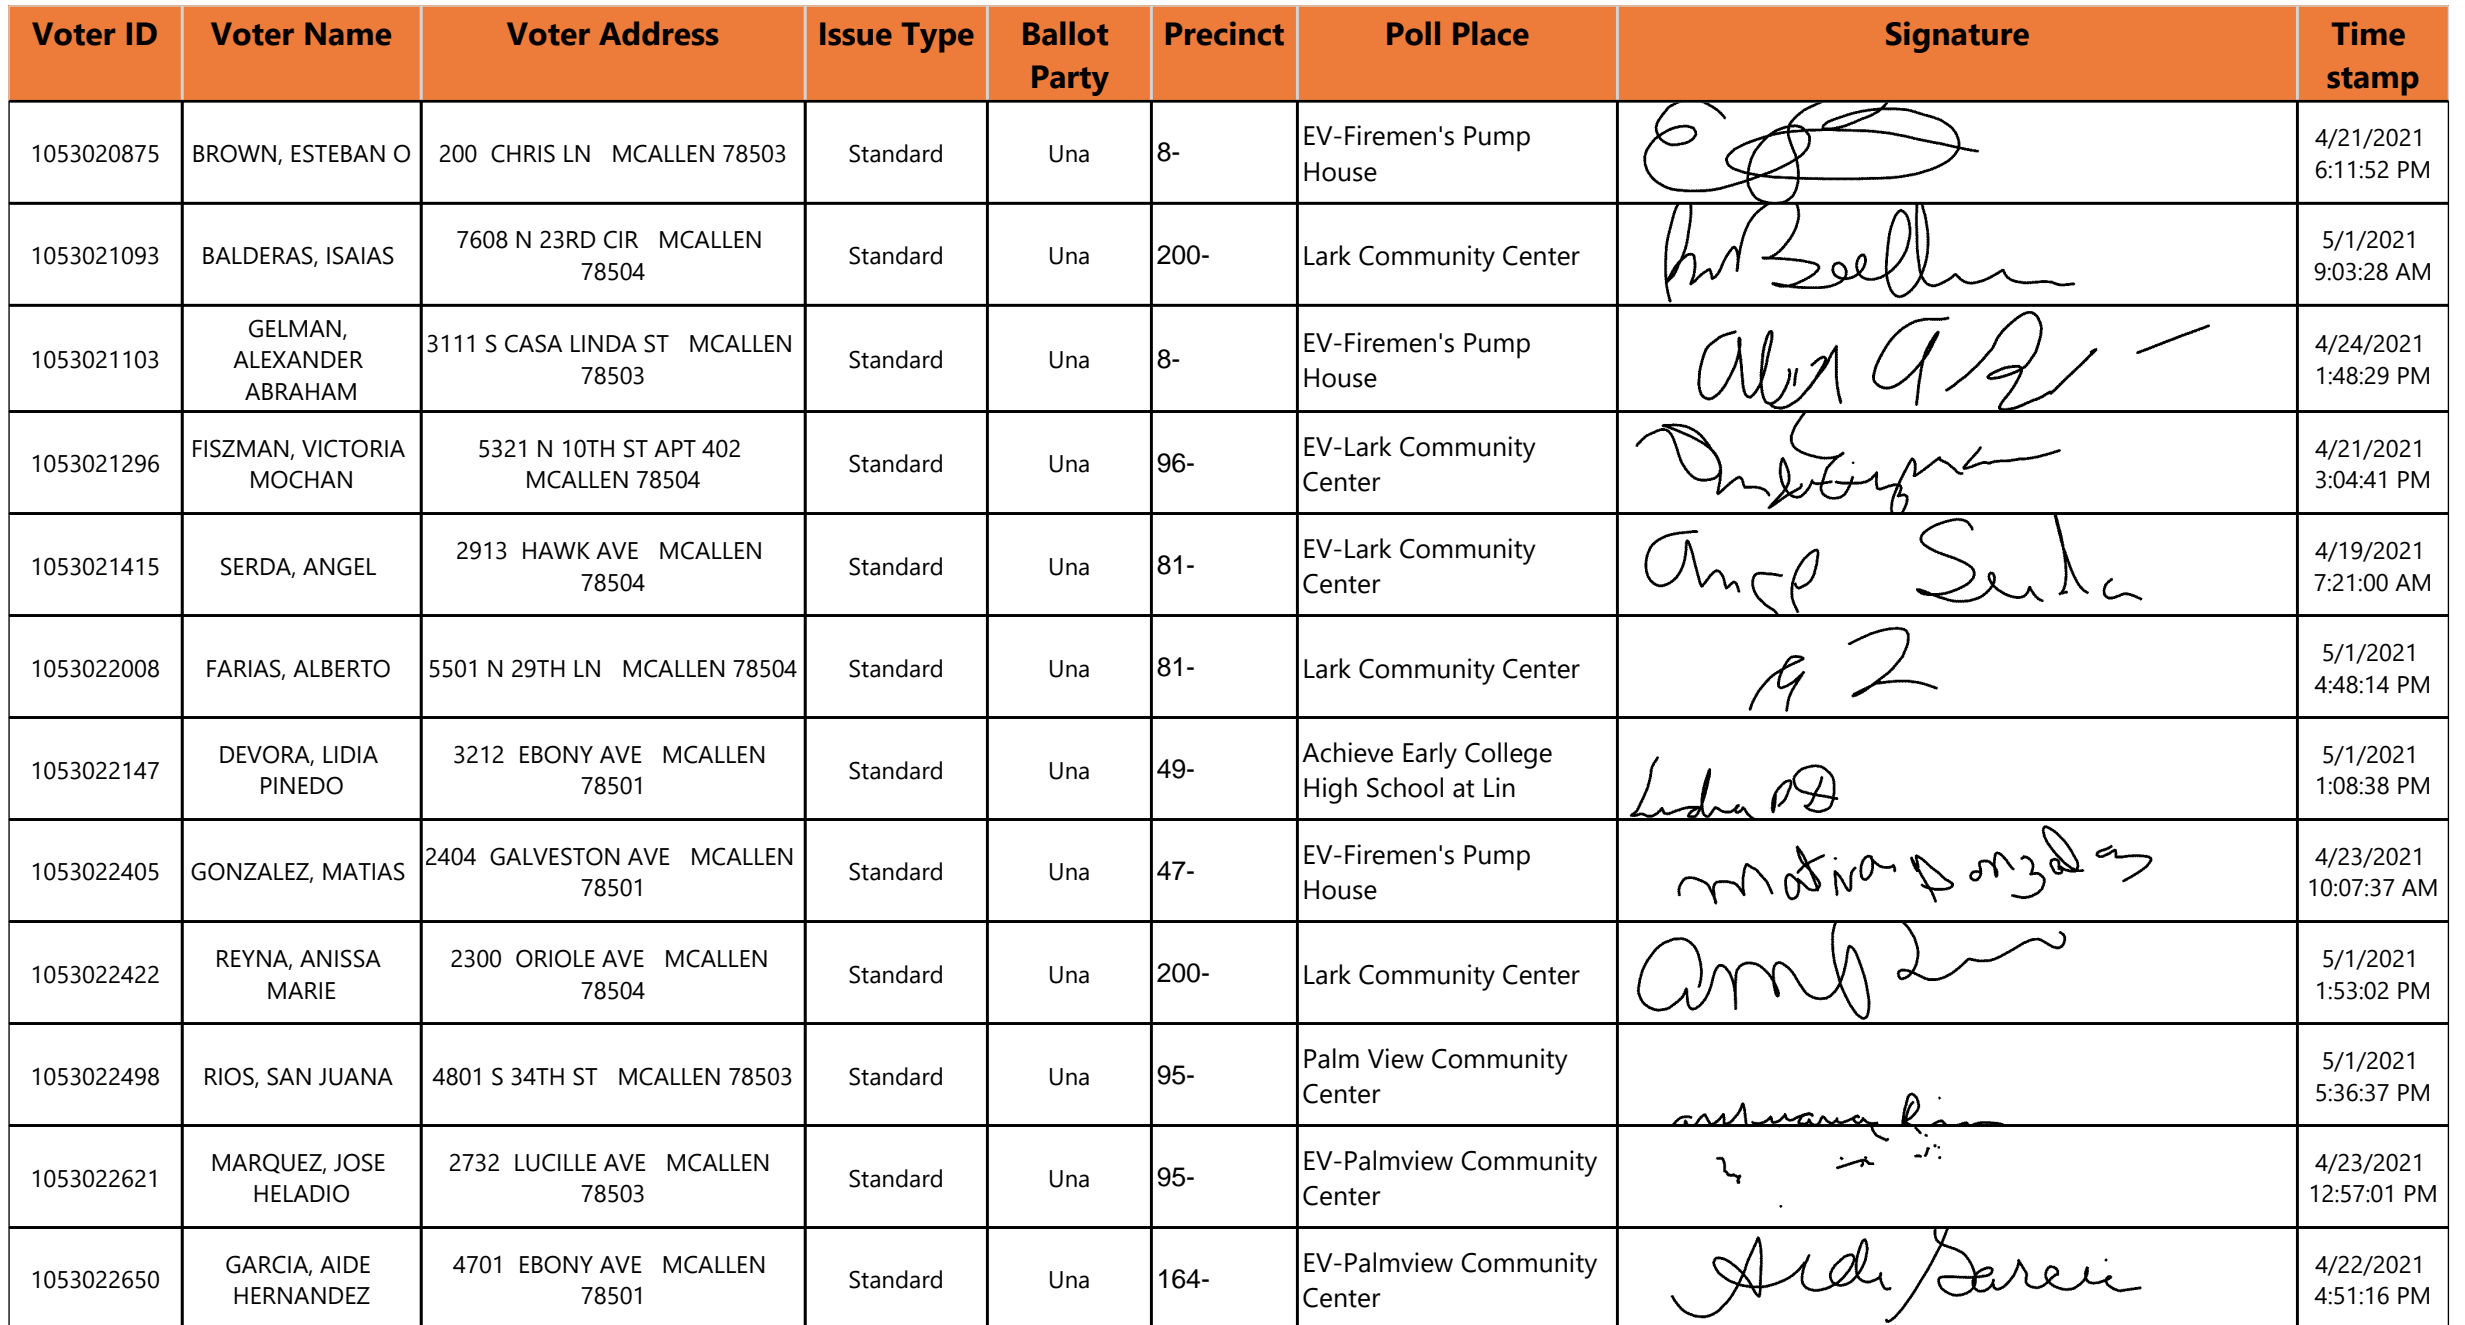 Voter ID Voter Name Voter Address Issue Type Ballot Party Precinct Poll Place Signature Time stamp
1053020875 BROWN, ESTEBAN O 200 CHRIS LN MCALLEN 78503 Standard Una 8- EV-Firemen's Pump House 4/21/2021 6:11:52 PM
1053021093 BALDERAS, ISAIAS 7608 N 23RD CIR MCALLEN 78504 Standard Una 200- Lark Community Center 5/1/2021 9:03:28 AM
1053021103 GELMAN, ALEXANDER ABRAHAM 3111 S CASA LINDA ST MCALLEN 78503 Standard Una 8- EV-Firemen's Pump House 4/24/2021 1:48:29 PM
1053021296 FISZMAN, VICTORIA MOCHAN 5321 N 10TH ST APT 402 MCALLEN 78504 Standard Una 96- EV-Lark Community Center 4/21/2021 3:04:41 PM
1053021415 SERDA, ANGEL 2913 HAWK AVE MCALLEN 78504 Standard Una 81- EV-Lark Community Center Angel Serda 4/19/2021 7:21:00 AM
1053022008 FARIAS, ALBERTO 5501 N 29TH LN MCALLEN 78504 Standard Una 81- Lark Community Center 5/1/2021 4:48:14 PM
1053022147 DEVORA, LIDIA PINEDO 3212 EBONY AVE MCALLEN 78501 Standard Una 49- Achieve Early College High School at Lin Lidia PD 5/1/2021 1:08:38 PM
1053022405 GONZALEZ, MATIAS 2404 GALVESTON AVE MCALLEN 78501 Standard Una 47- EV-Firemen's Pump House Matias Gonzalez 4/23/2021 10:07:37 AM
1053022422 REYNA, ANISSA MARIE 2300 ORIOLE AVE MCALLEN 78504 Standard Una 200- Lark Community Center 5/1/2021 1:53:02 PM
1053022498 RIOS, SAN JUANA 4801 S 34TH ST MCALLEN 78503 Standard Una 95- Palm View Community Center 5/1/2021 5:36:37 PM
1053022621 MARQUEZ, JOSE HELADIO 2732 LUCILLE AVE MCALLEN 78503 Standard Una 95- EV-Palmview Community Center 4/23/2021 12:57:01 PM
1053022650 GARCIA, AIDE HERNANDEZ 4701 EBONY AVE MCALLEN 78501 Standard Una 164- EV-Palmview Community Center Aide Garcia 4/22/2021 4:51:16 PM